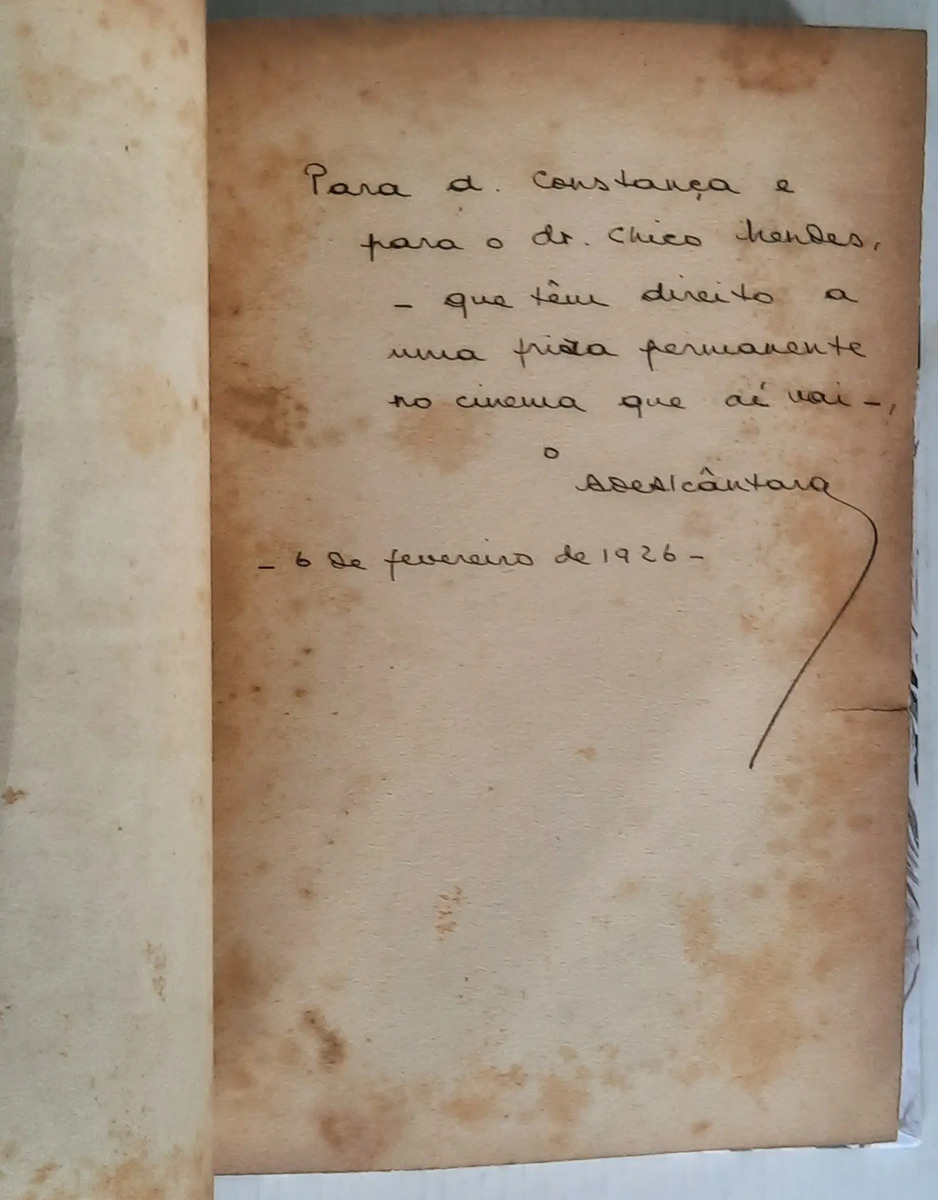 Para d. Constança e
para o dr. Chico Mendes,
– que têm direito a
uma friza permanente
no cinema que aí vai –,
o
ADeAlcântara
– 6 de fevereiro de 1926 –